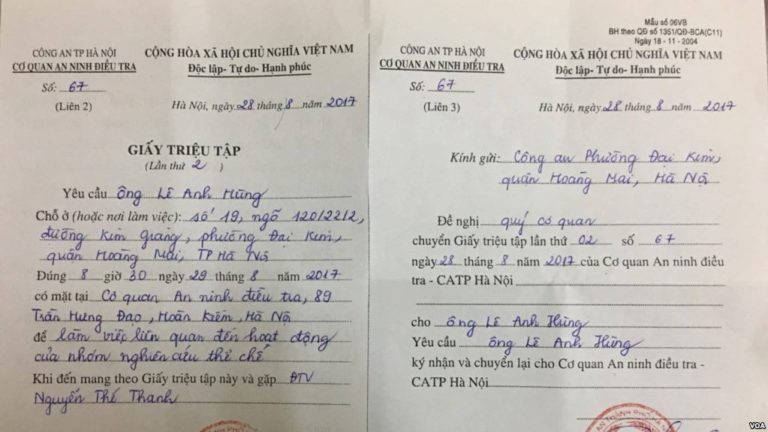 CÔNG AN TP HÀ NỘI
CƠ QUAN AN NINH ĐIỀU TRA
Số: 67
(Liên 2)
CỘNG HÒA XÃ HỘI CHỦ NGHĨA VIỆT NAM
Độc lập- Tự do- Hạnh phúc
Hà Nội, ngày 28 tháng 8 năm 2017
GIẤY TRIỆU TẬP
(Lần thứ 2)
Yêu cầu ông Lê Anh Hùng
Chỗ ở (hoặc nơi làm việc): số 19, ngõ 120/22/2,
đường Kim Giang, phường Đại Kim,
quận Hoàng Mai, TP Hà Nội
Đúng 8 giờ 30 ngày 29 tháng 8 năm 2017
có mặt tại Cơ quan An ninh điều tra, 89
Trần Hưng Đạo, Hoàn Kiếm, Hà Nội
để làm việc liên quan đến hoạt động
của nhóm nghiên cứu thể chế
Khi đến mang theo Giấy triệu tập này và gặp ĐTV
Nguyễn Thế Thanh
Mẫu số 06VB
BH theo QĐ số 1351/QĐ-BCA(C11)
Ngày 18 - 11 - 2004
CÔNG AN TP HÀ NỘI
CƠ QUAN AN NINH ĐIỀU TRA
Số: 67
(Liên 3)
CỘNG HÒA XÃ HỘI CHỦ NGHĨA VIỆT NAM
Độc lập- Tự do- Hạnh phúc
Hà Nội, ngày 28 tháng 8 năm 2017
Kính gửi: Công an Phường Đại Kim,
quận Hoàng Mai, Hà Nội
Đề nghị quý cơ quan
chuyển Giấy triệu tập lần thứ 02 số 67
ngày 28 tháng 8 năm 2017 của Cơ quan An ninh điều
tra - CATP Hà Nội
cho ông Lê Anh Hùng
Yêu cầu ông Lê Anh Hùng
ký nhận và chuyển lại cho Cơ quan An ninh điều tra -
CATP Hà Nội
VOA